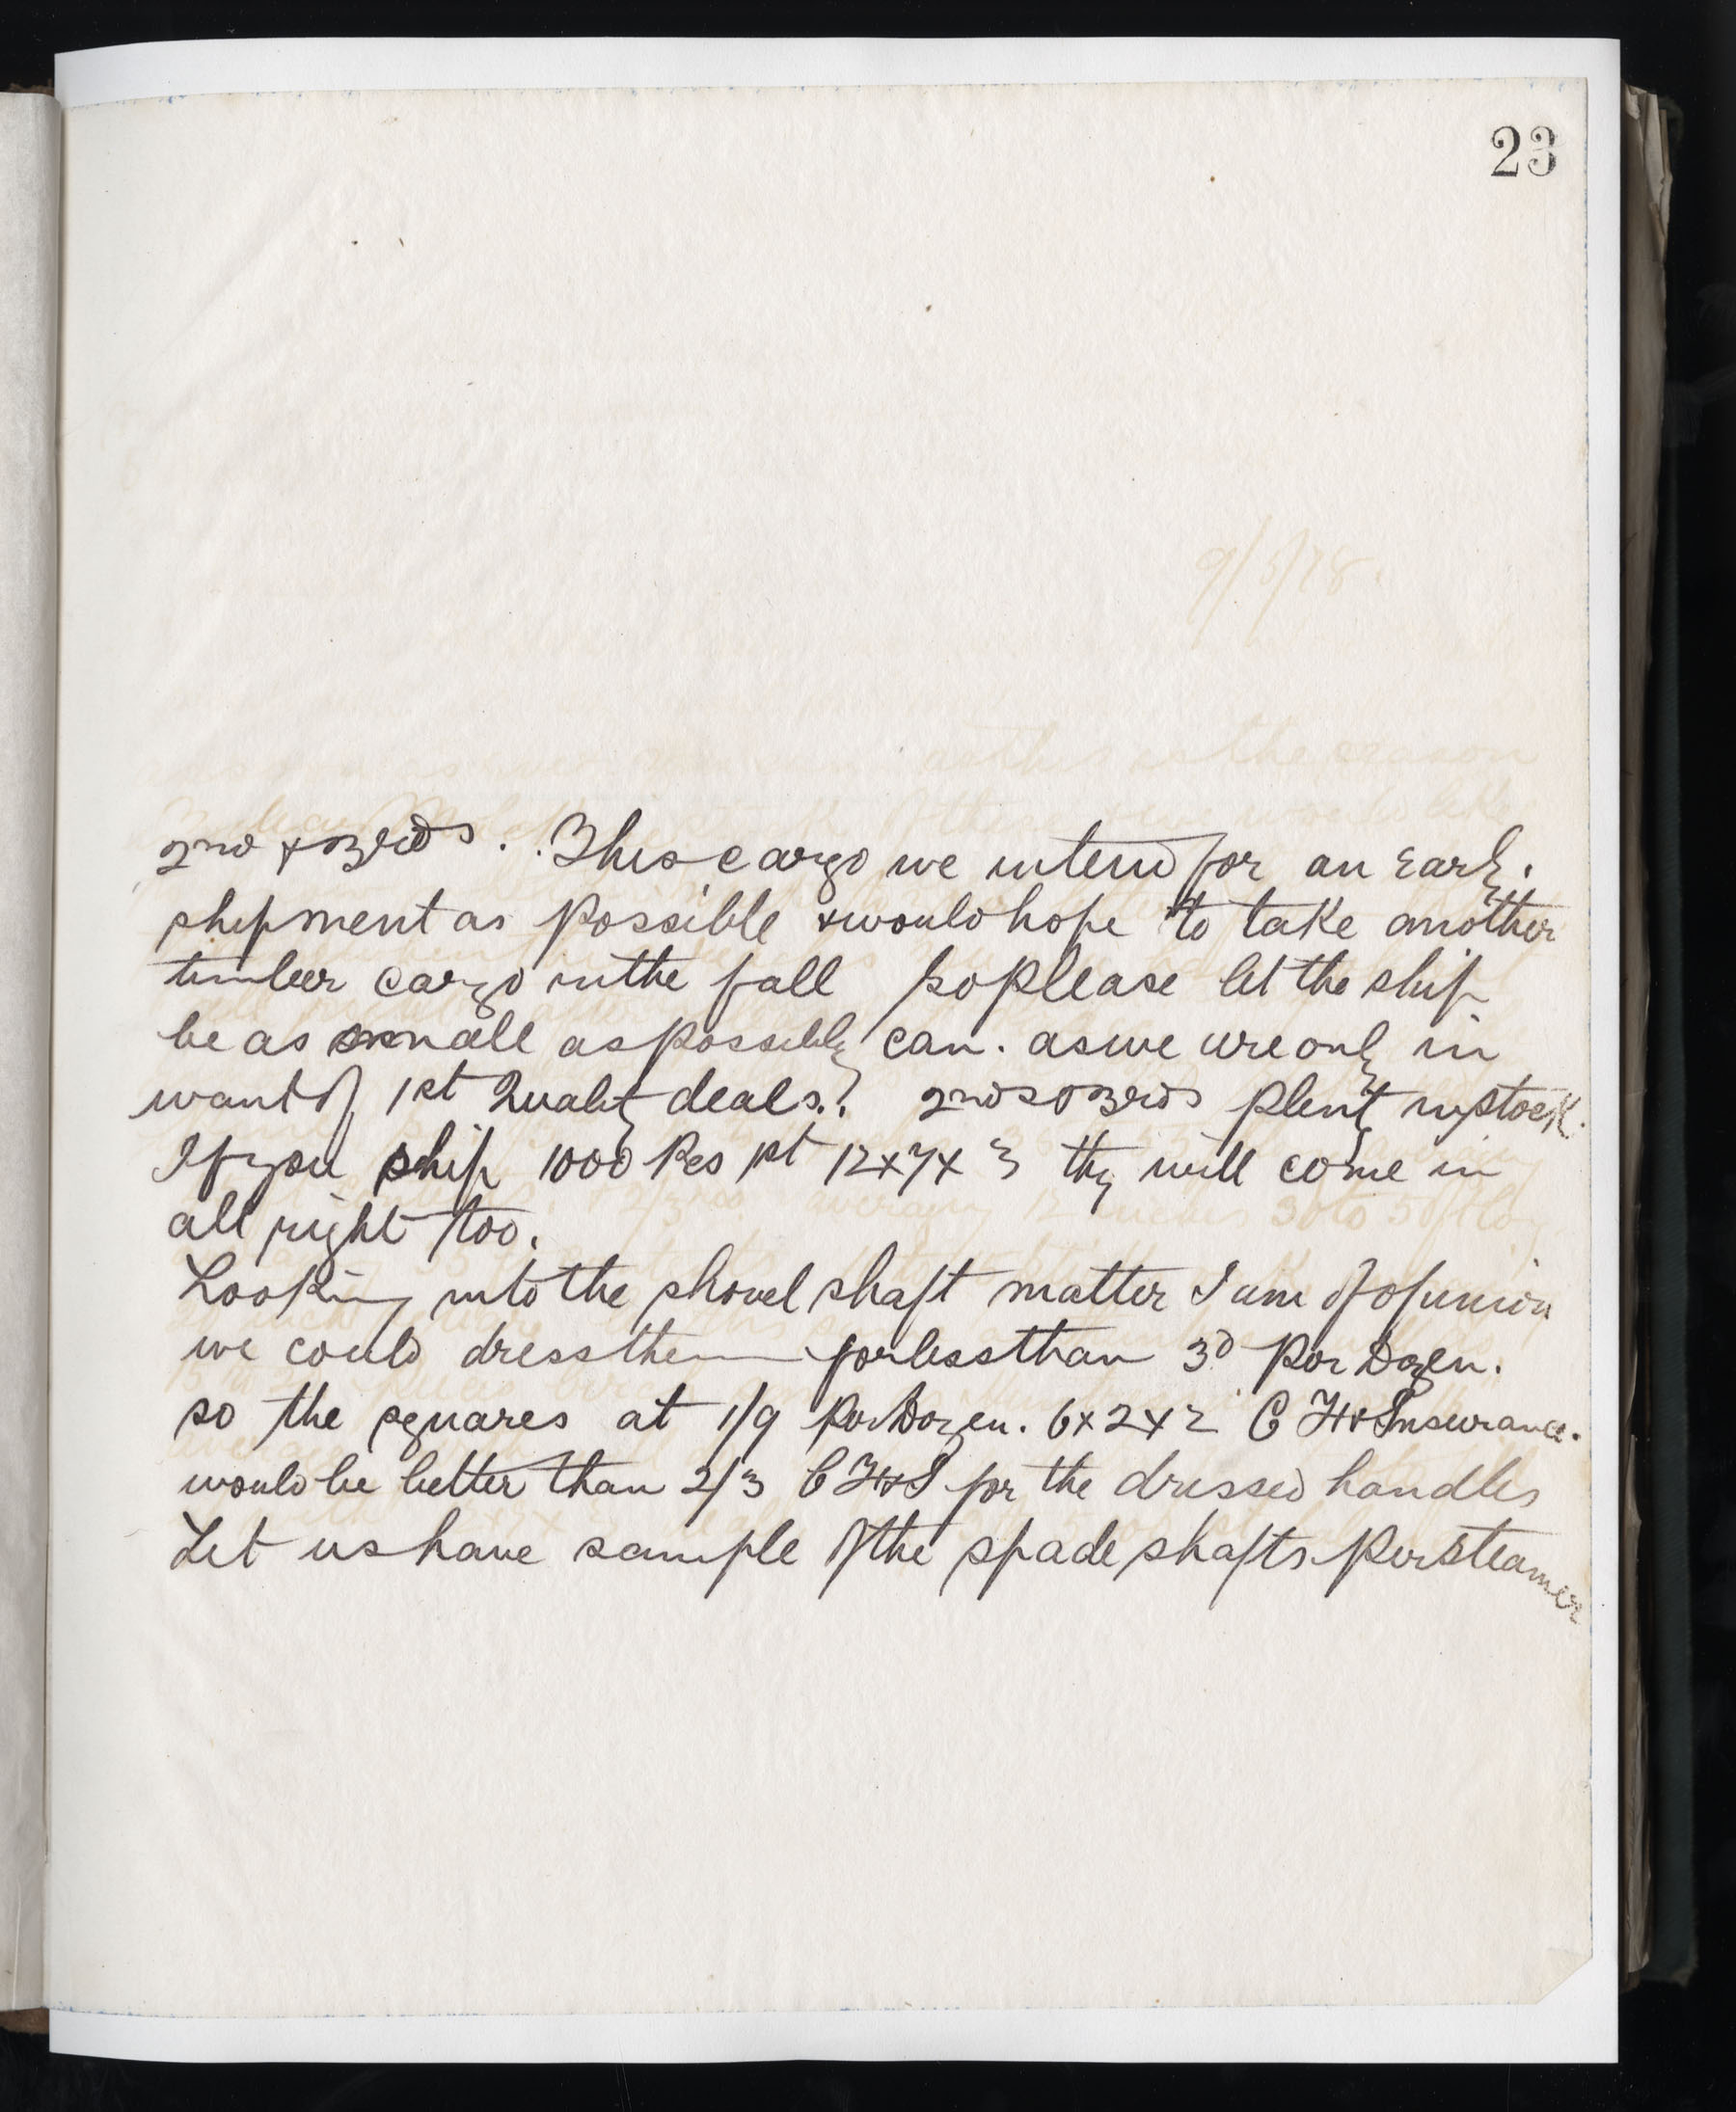 23
9/5/78.
2nd & 3rds. This cargo we intend for an Early
shipment as possible & would hope to take another
timber cargo in the fall so please let the ship
be as small as possibly can. as we are only in
want of 1st Quality deals. 2nds & 3rds plenty in stock.
If you ship 1000 Pcs 1st 12x7x3 they will come in
all right too.
Looking into the shovel shaft matter I am of opinion
we could dress them for less than 3d Per Dozen.
so the squares at 1/9 Per Dozen. 6x2x2 C F & Insurance.
would be better than 2/3 C F & I for the dressed handles
Let us have sample of the spade shafts Per Steamer